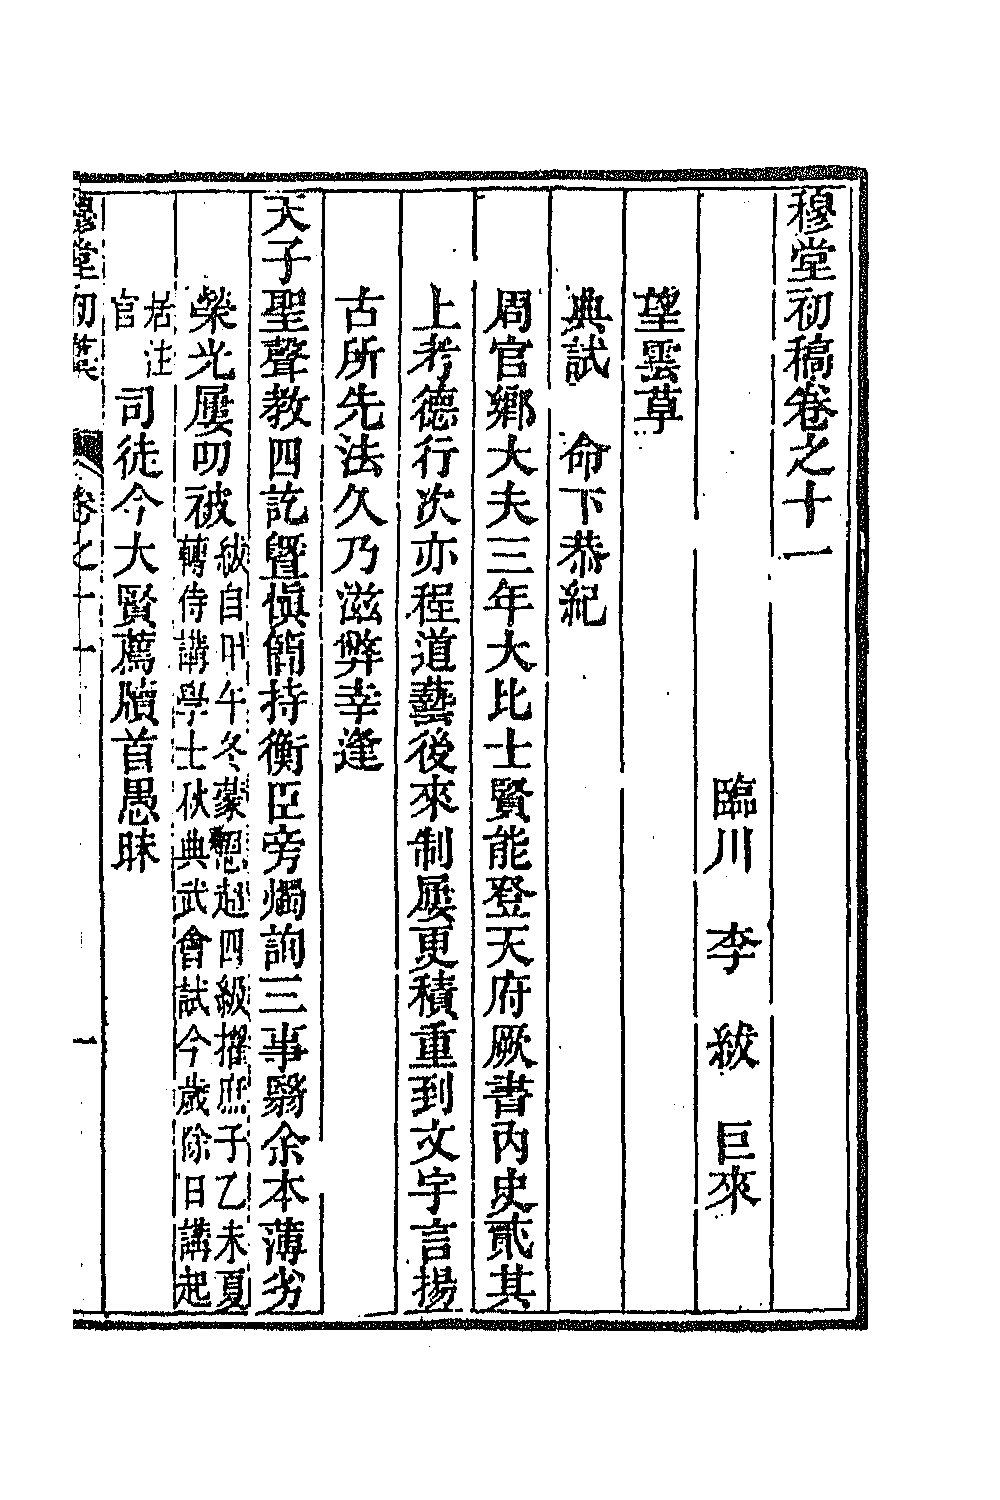 穆堂初稿卷之十一
臨川 李 紱 巨來
望雲草
典試 命下恭紀
周官鄉大夫三年大比士賢能登天府厥書內史貳其
上考德行次亦程道藝後來制屢更積重到文字言揚
古所先法久乃滋弊幸逢
天子聖聲教四訖曁愼簡持衡臣旁燭詢三事翳余本薄劣
榮光屢叨被
紱自甲午冬蒙恩超四級擢庶子乙未夏
轉侍講學士秋典武會試今歲除日講起
居注
官
司徒今大賢薦牘首愚昧
穆堂初稿 卷之十一 一